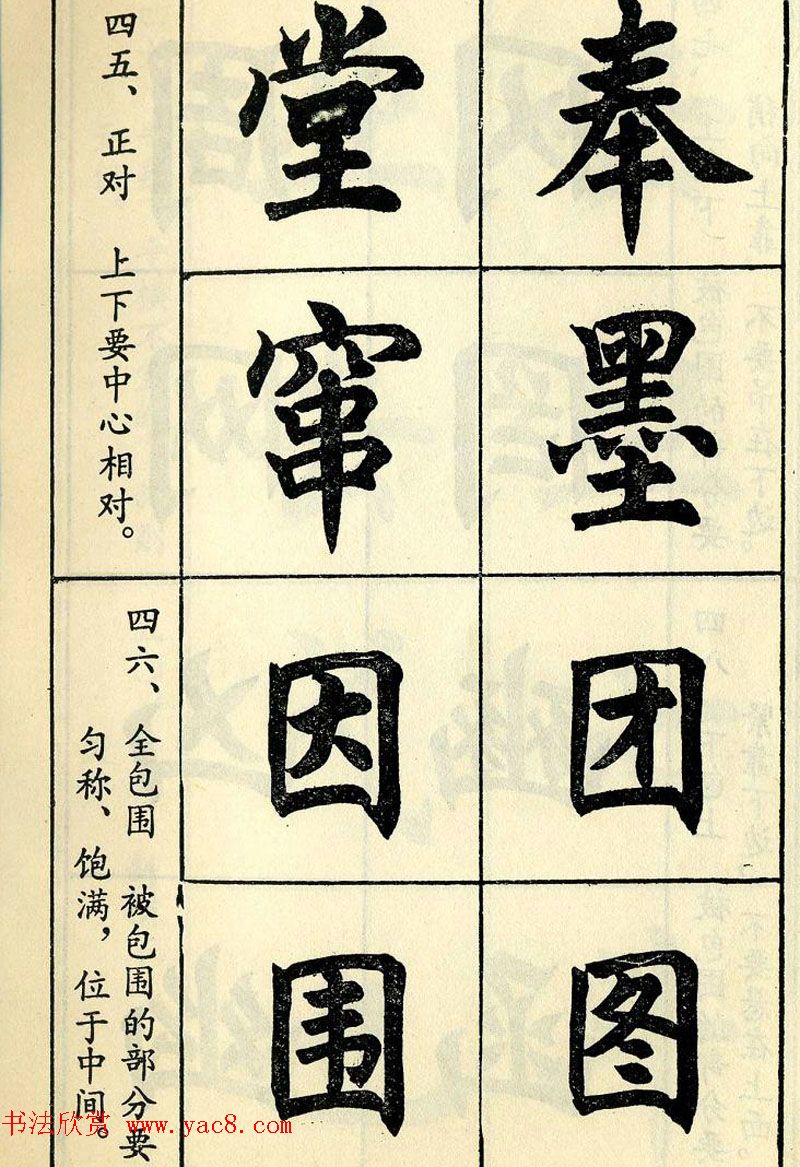 奉
墨
堂
窜
四五、正对 上下要中心相对。
团
图
因
围
四六、全包围 被包围的部分要
匀称、饱满，位于中间。
书法欣赏 www.yac8.com